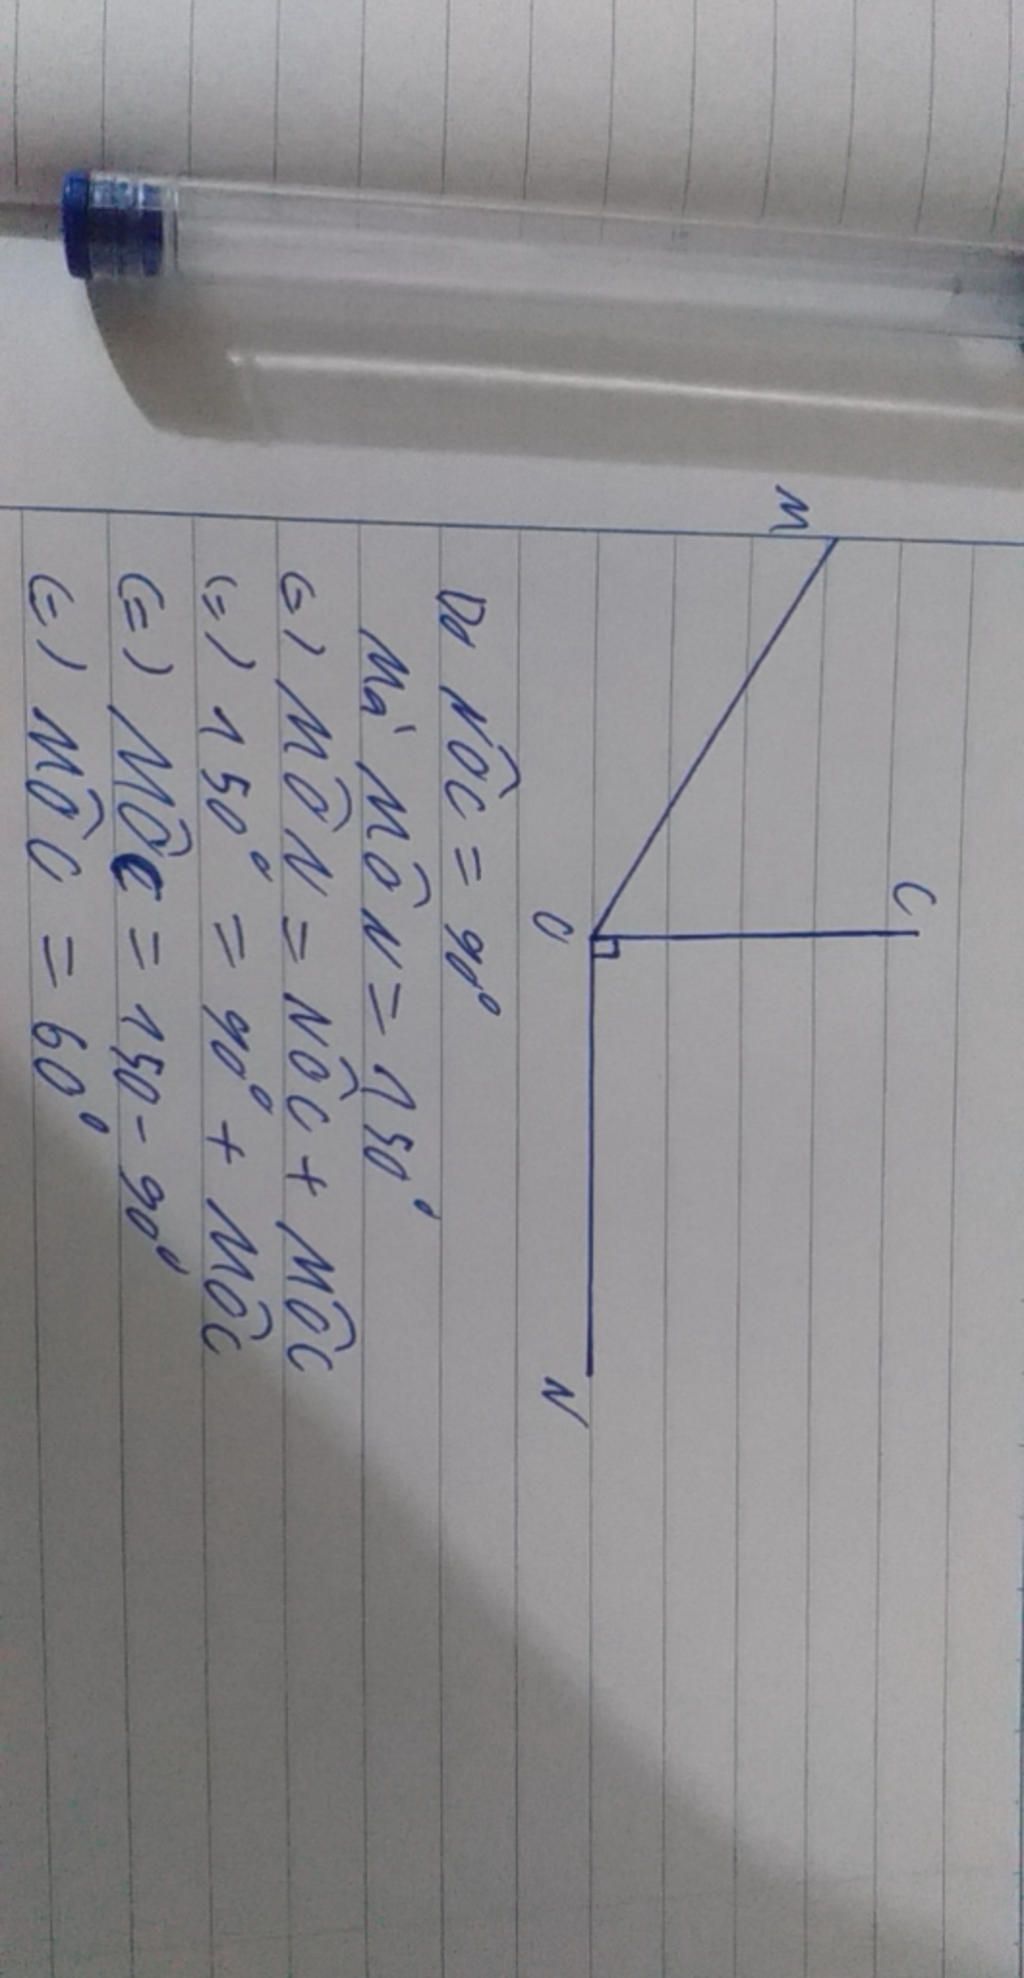 M
C
O
N
Do NÔC = 90°
Mà MÔN = 150°
=) MÔN = NÔC + MÔC
(=) 150° = 90° + MÔC
(=) MÔC = 150 - 90°
(=) MÔC = 60°